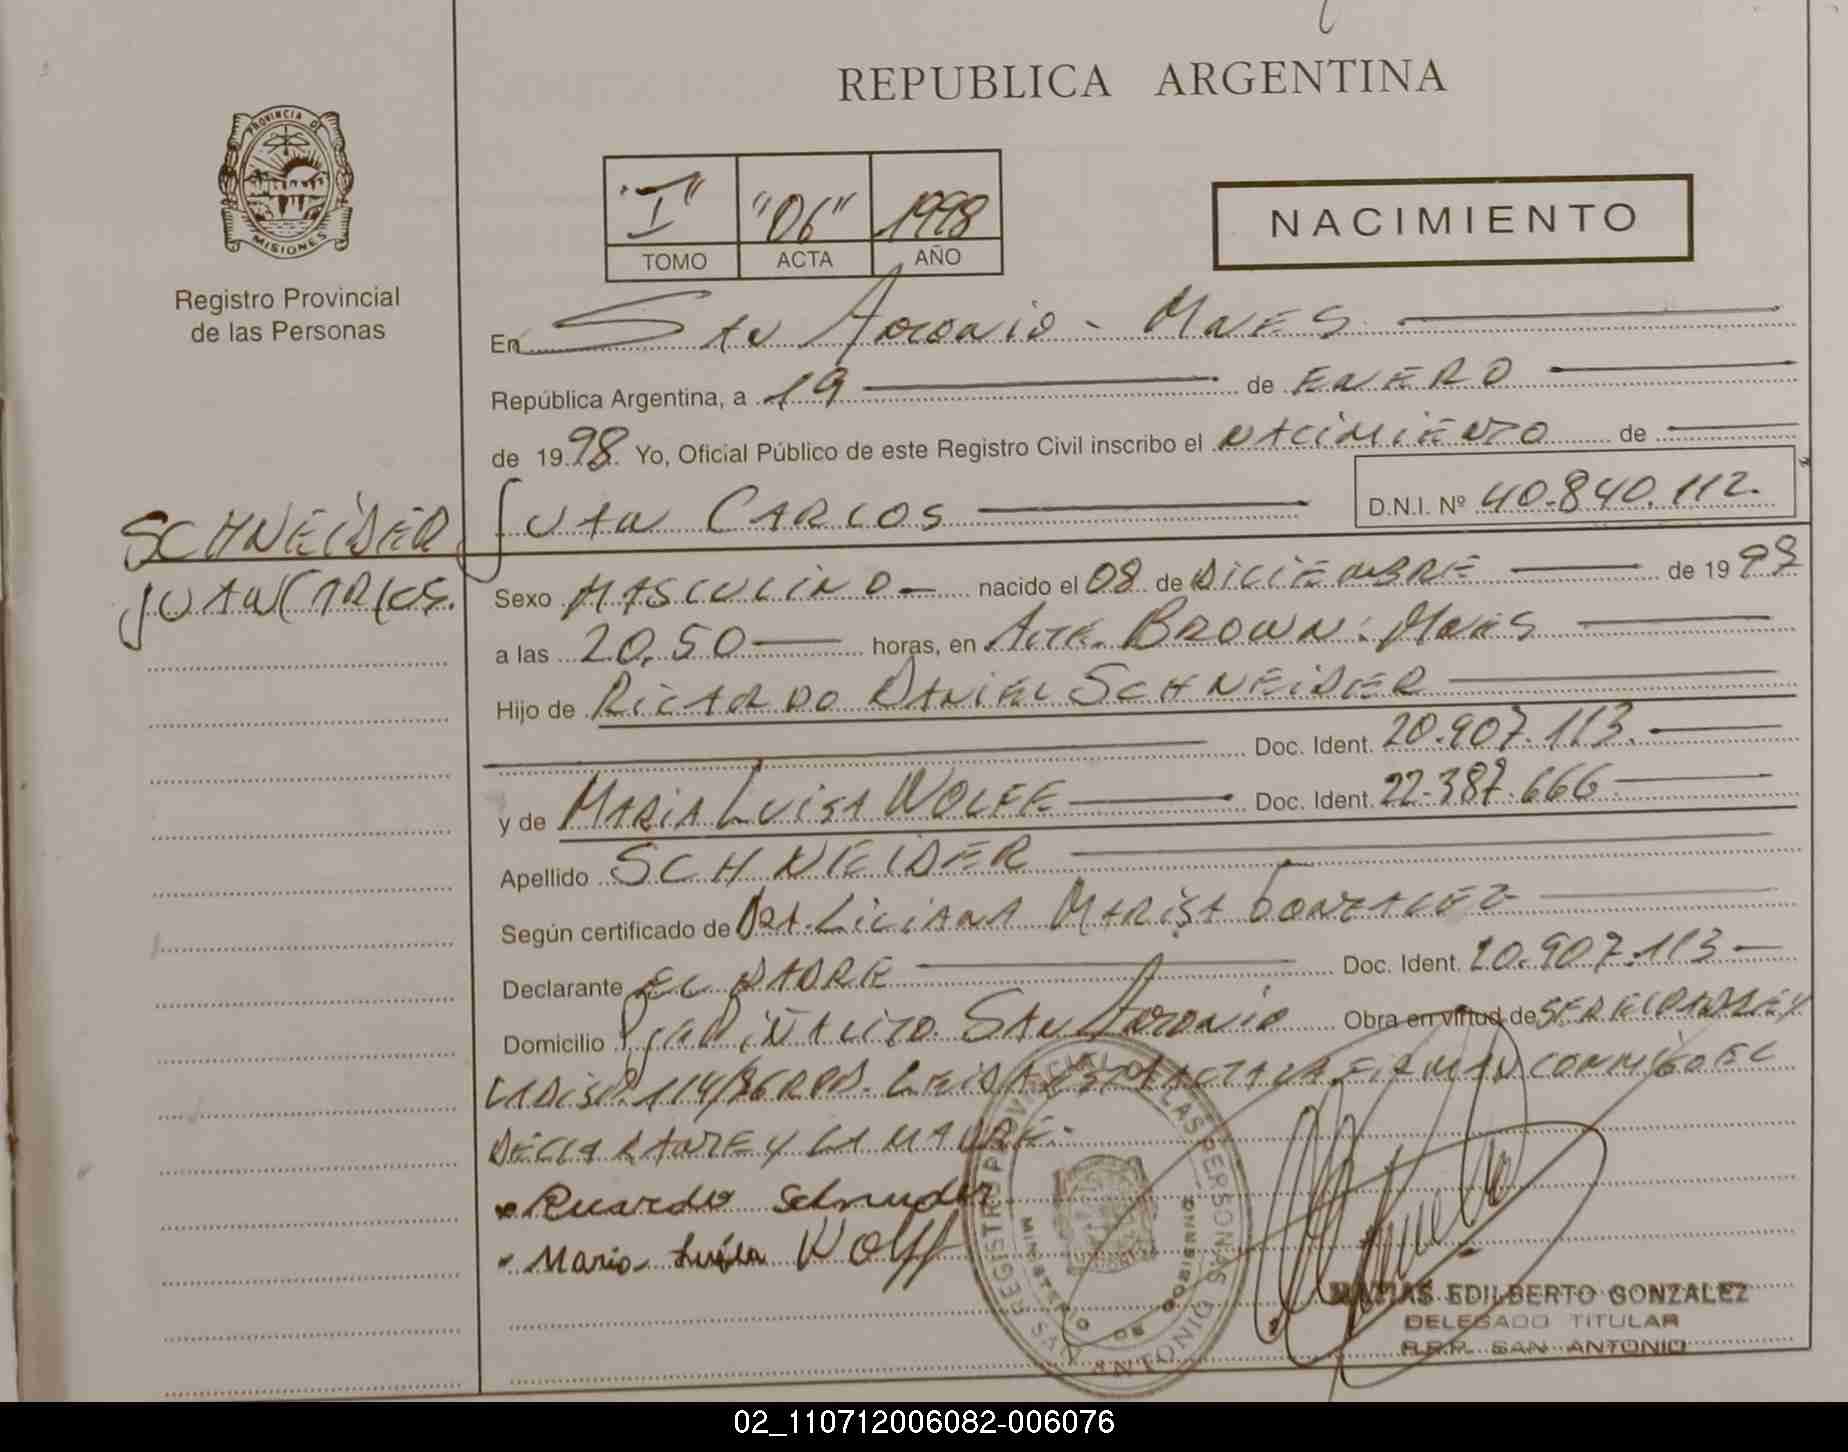 REPUBLICA ARGENTINA
PROVINCIA DE
MISIONES
Registro Provincial
de las Personas
"I" "06" 1998
TOMO ACTA AÑO
NACIMIENTO
En San Antonio - Mnes
República Argentina, a 19 de ENERO
de 1998 Yo, Oficial Público de este Registro Civil inscribo el NACIMIENTO de
JUAN CARLOS D.N.I. Nº 40.840.112.
SCHNEIDER
JUAN CARLOS.
Sexo MASCULINO nacido el 08 de DICIEMBRE de 1997
a las 20,50 horas, en Alte. BROWN. Mnes
Hijo de RICARDO DANIEL SCHNEIDER
Doc. Ident. 20.907.113.
y de MARIA LUISA WOLFF Doc. Ident. 22.387.666
Apellido SCHNEIDER
Según certificado de DRA. LILIANA MARISA GONZALEZ
Declarante EL PADRE Doc. Ident. 20.907.113
Domicilio PIÑALITO SAN ANTONIO Obra en virtud de SER EL PADRE Y
LA DISP. 114/86 RPP. LEIDA EL ACTA LA FIRMAN CONMIGO EL
DECLARANTE Y LA MADRE.
Ricardo Schneider
Maria Luisa Wolff
REGISTRO PROVINCIAL DE LAS PERSONAS
MINISTERIO DE GOBIERNO
MATIAS EDILBERTO GONZALEZ
DELEGADO TITULAR
R.P.P. SAN ANTONIO
02_110712006082-006076